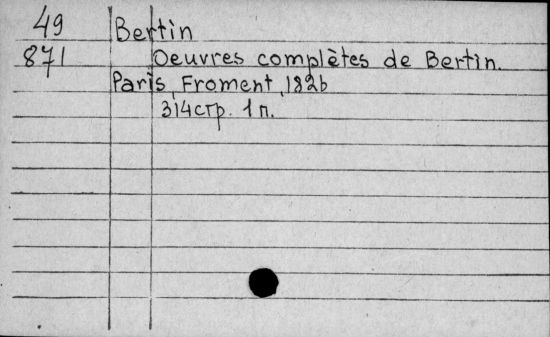 49 Bertin
871 Oeuvres complètes de Bertin.
Paris, Froment, 1826
314 стр. 1 п.